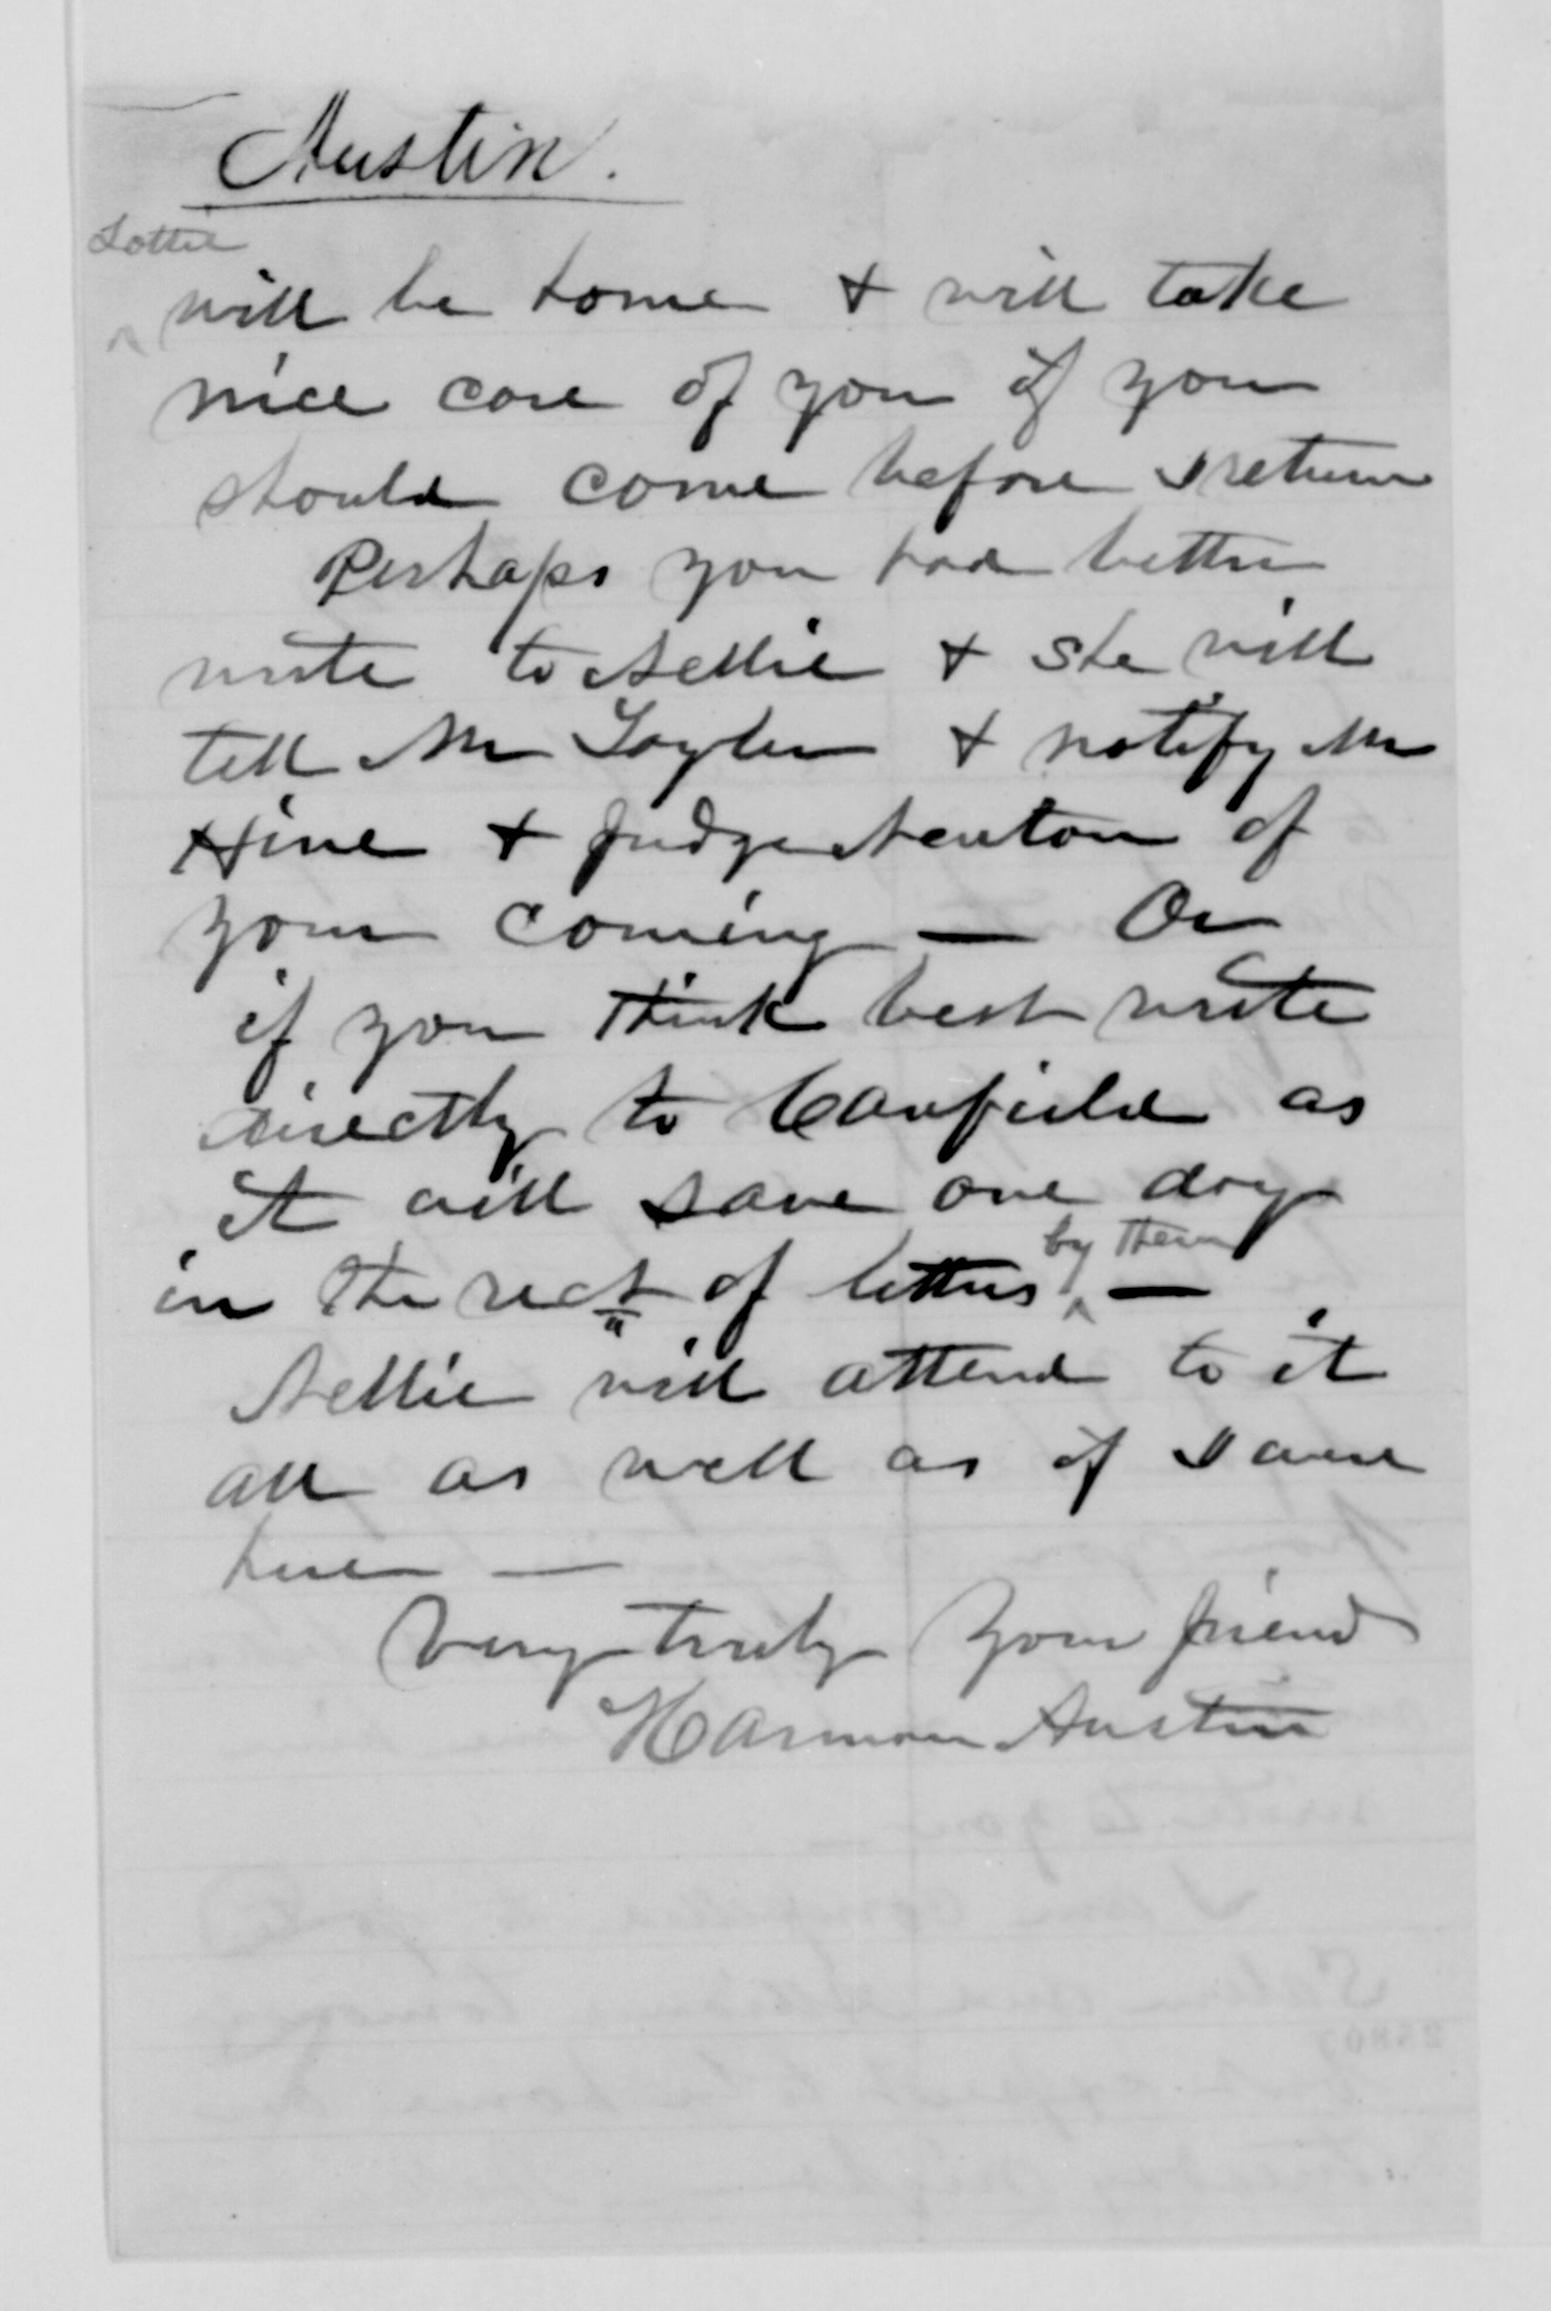 Austin.
Lottie
will be home + will take
nice care of you if you
should come before I return
Perhaps you had better
write to Nellie + she will
tell Mr Taylor + notify Mr
Hine + Judge Newton of
your coming — Or
if you think best write
directly to Canfield as
it will save one day
by them
in the rect of letters —
Nellie will attend to it
all as well as if I were
here —
Very truly Your friend
Harmon Austin